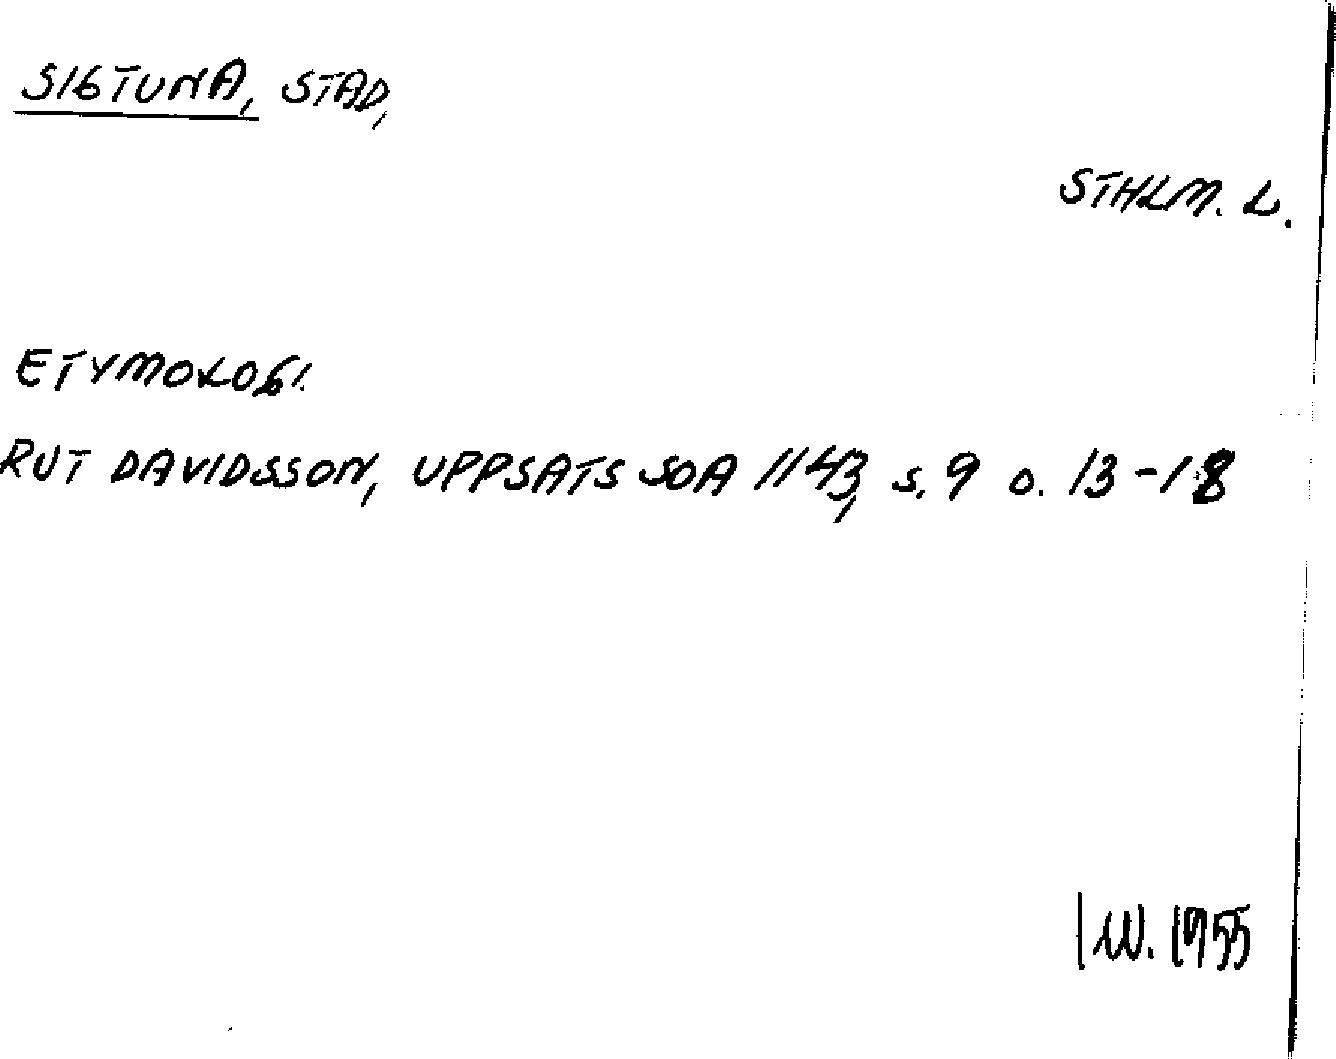 SIGTUNA, STAD,
STHLM. L.
ETYMOLOGI.
RUT DAVIDSSON, UPPSATS SOA 1143, s. 9 o. 13-18
I.W. 1955